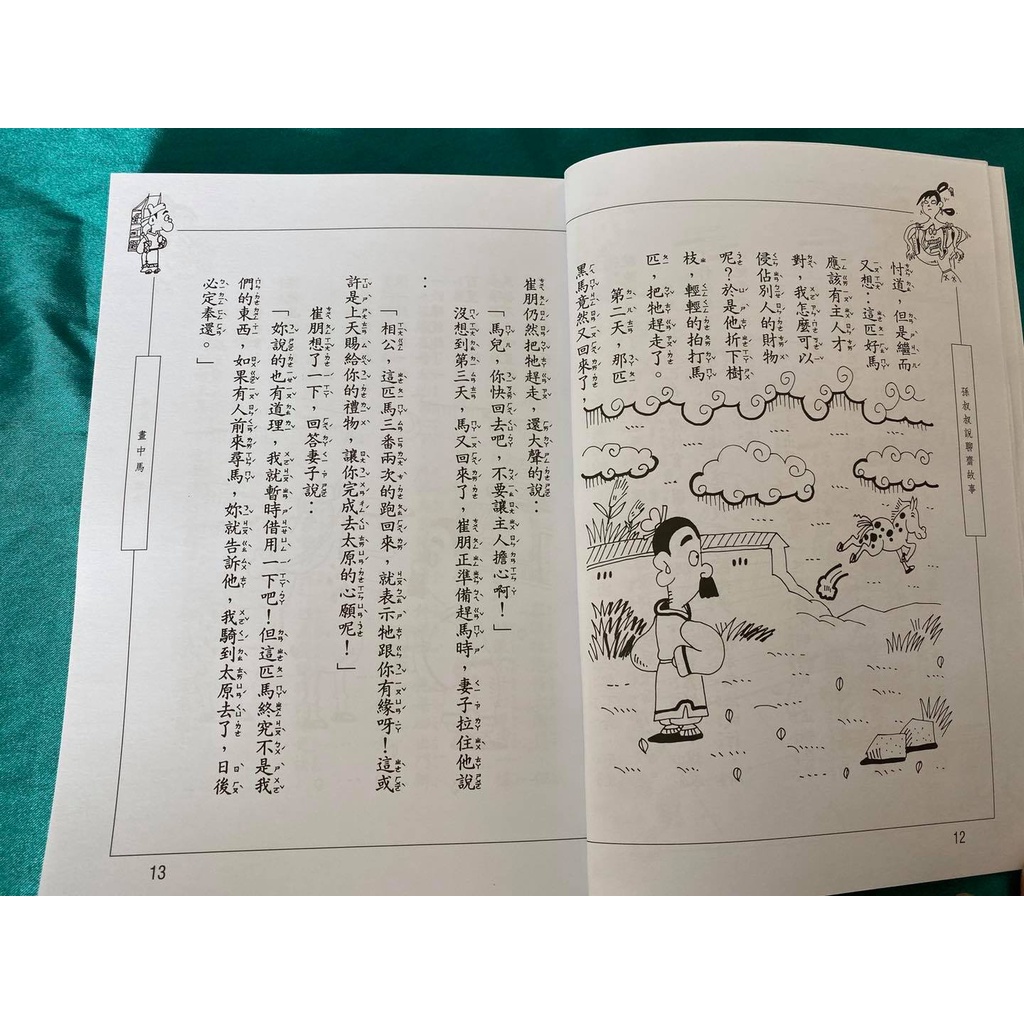 孫叔叔說聊齋故事
忖道，但是繼而
又想：這匹好馬
應該有主人才
對，我怎麼可以
侵佔別人的財物
呢？於是他折下樹
枝，輕輕的拍打馬
匹，把牠趕走了。
第二天，那匹
黑馬竟然又回來了，
12
崔朋仍然把牠趕走，還大聲的說：
「馬兒，你快回去吧，不要讓主人擔心啊！」
沒想到第三天，馬又回來了，崔朋正準備趕馬時，妻子拉住他說
：
「相公，這匹馬三番兩次的跑回來，就表示牠跟你有緣呀！這或
許是上天賜給你的禮物，讓你完成去太原的心願呢！」
崔朋想了一下，回答妻子說：
「妳說的也有道理，我就暫時借用一下吧！但這匹馬終究不是我
們的東西，如果有人前來尋馬，妳就告訴他，我騎到太原去了，日後
必定奉還。」
畫中馬
13